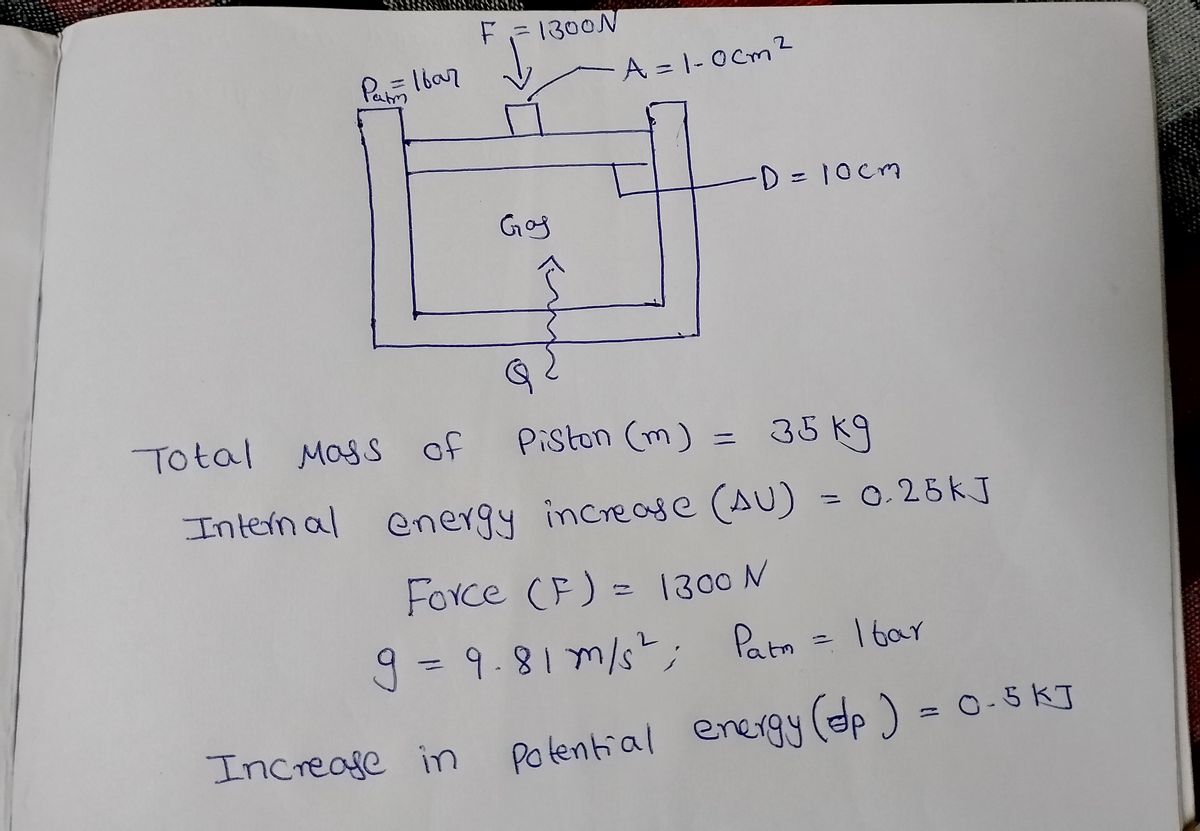 F = 1300N
Patm = 1bar
A = 1-0cm²
D = 10cm
Gas
Q
Total Mass of Piston (m) = 35 kg
Internal energy increase (ΔU) = 0.25kJ
Force (F) = 1300 N
g = 9.81 m/s² ; Patm = 1bar
Increase in Potential energy (dp) = 0-5 KJ